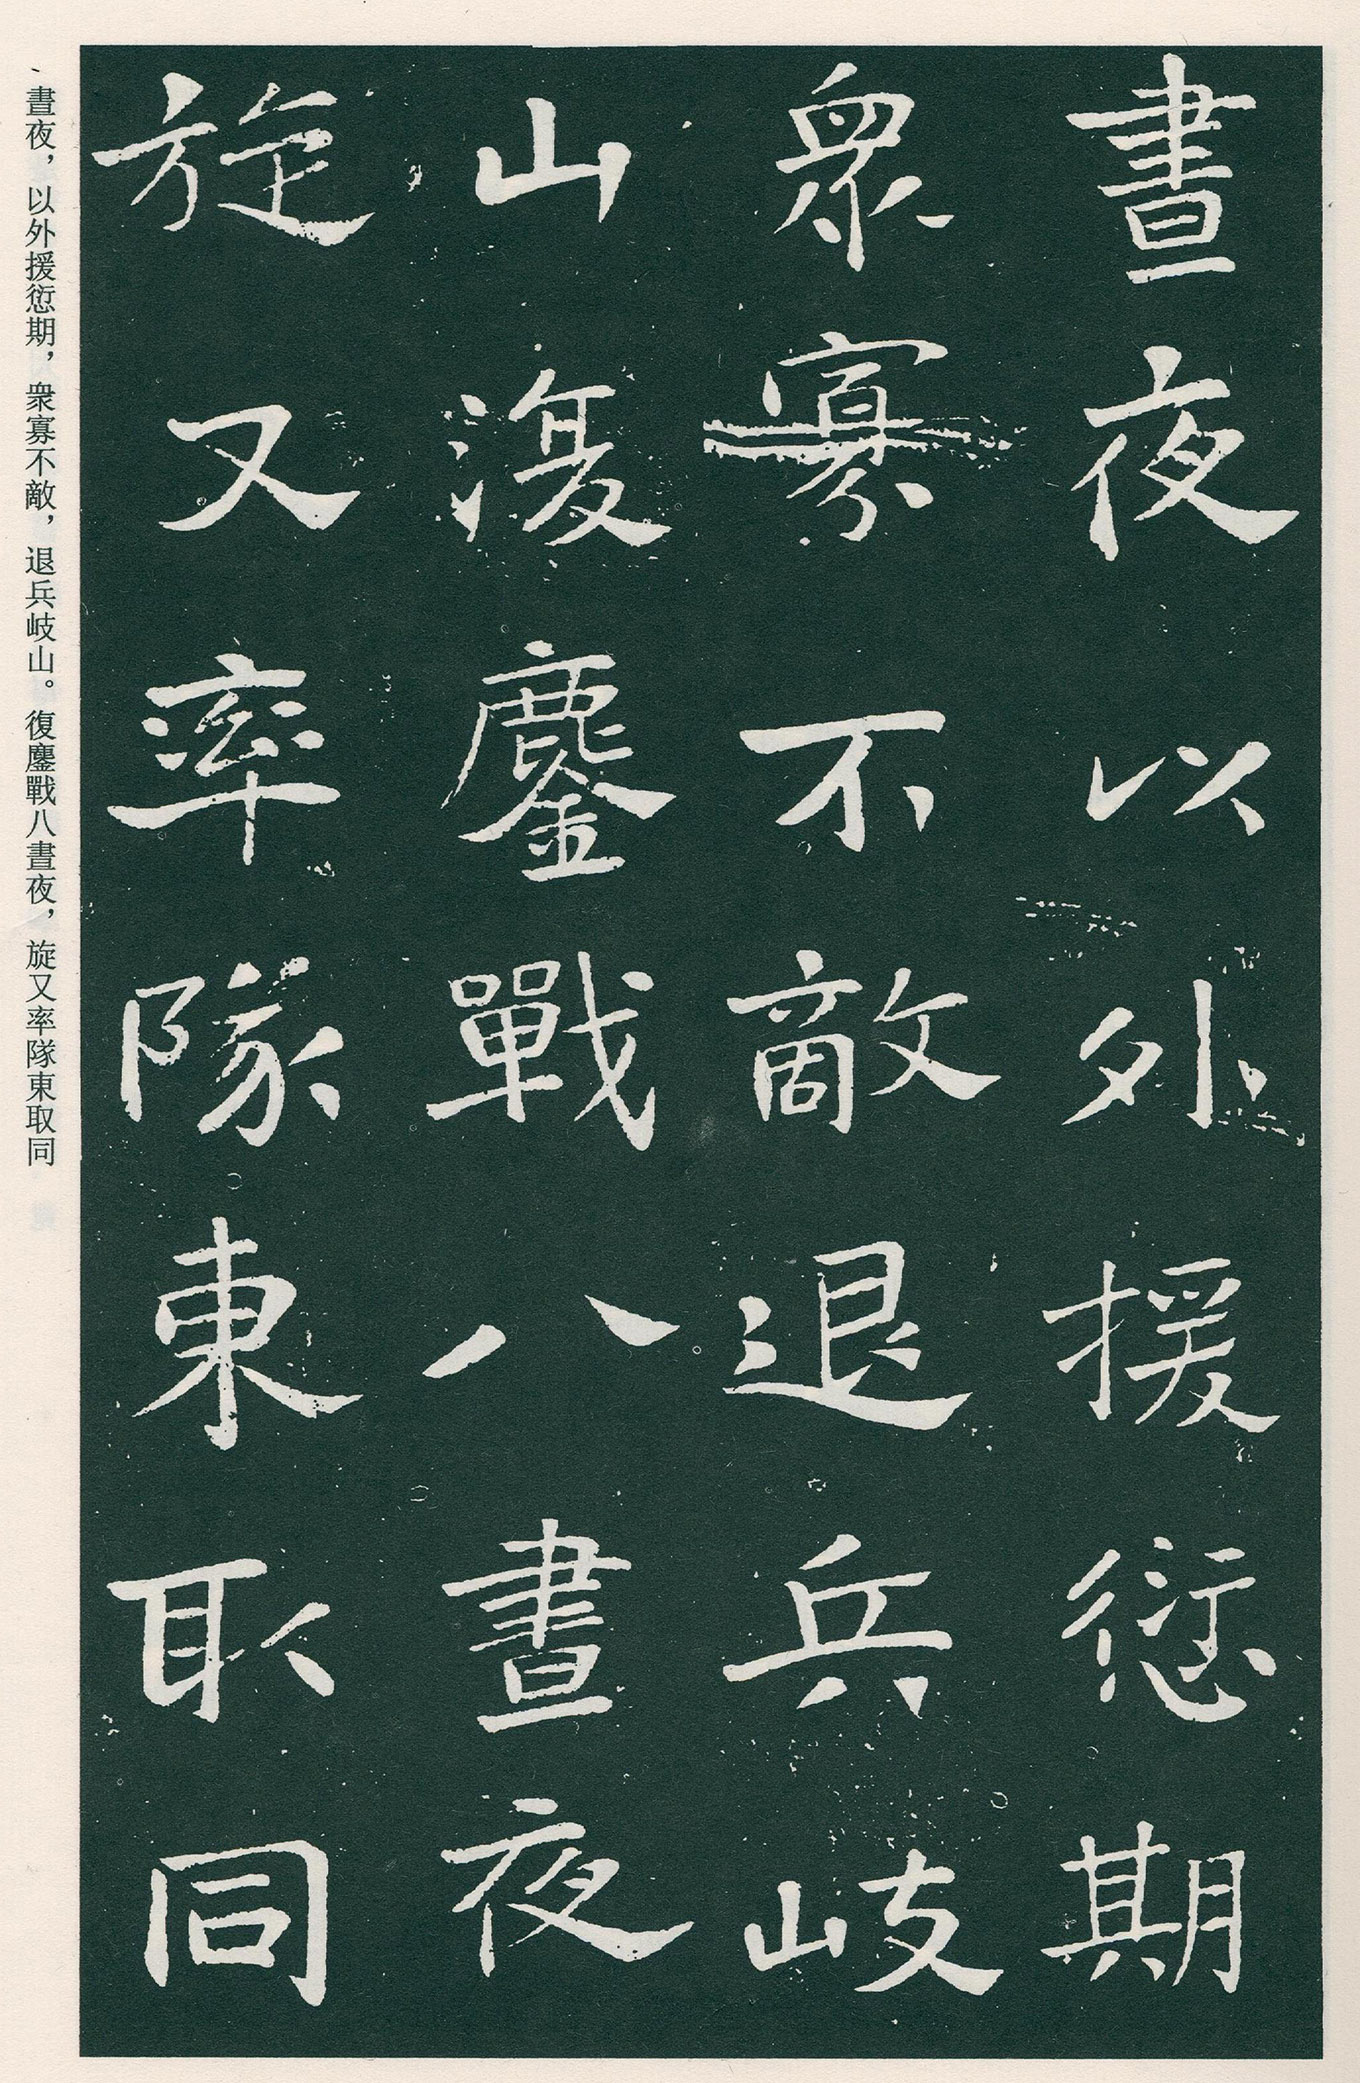 晝夜以外援愆期
衆寡不敵退兵岐
山復鏖戰八晝夜
旋又率隊東取同
晝夜，以外援愆期，衆寡不敵，退兵岐山。復鏖戰八晝夜，旋又率隊東取同